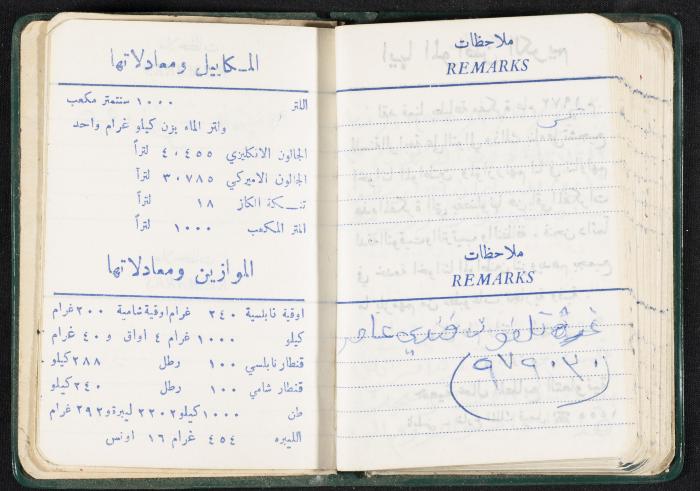 المكاييل ومعادلاتها
اللتر ١٠٠٠ سنتمتر مكعب
ولتر الماء يزن كيلو غرام واحد
الجالون الانكليزي ٤٠٤٥٥ لتراً
الجالون الاميركي ٣٠٧٨٥ لتراً
تنكة الكاز ١٨ لتراً
المتر المكعب ١٠٠٠ لتراً
الموازين ومعادلاتها
اوقية نابلسية ٢٤٠ غرام اوقية شامية ٢٠٠ غرام
كيلو ١٠٠٠ غرام ٤ اواق و ٤٠ غرام
قنطار نابلسي ١٠٠ رطل ٢٨٨ كيلو
قنطار شامي ١٠٠ رطل ٢٤٠ كيلو
طن ١٠٠٠ كيلو ٢٢٠٢ ليبرة و ٢٩٢ غرام
الليبره ٤٥٤ غرام ١٦ اونس
ملاحظات
REMARKS
ملاحظات
REMARKS
غرفة تلفون
(٩٧٩٠٢٠)